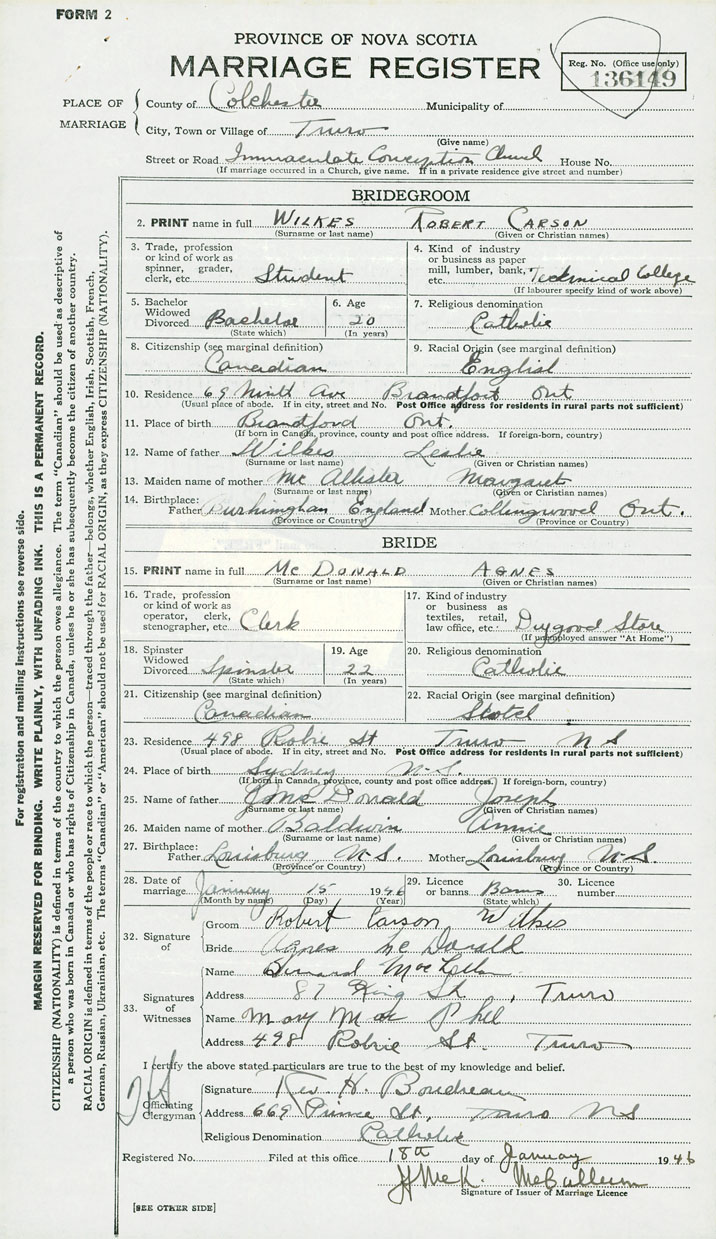 FORM 2
PROVINCE OF NOVA SCOTIA
MARRIAGE REGISTER
Reg. No. (Office use only)
136149
PLACE OF MARRIAGE
County of Colchester Municipality of
City, Town or Village of Truro
(Give name)
Street or Road Immaculate Conception Church House No.
(If marriage occurred in a Church, give name. If in a private residence give street and number)
BRIDEGROOM
2. PRINT name in full WILKES ROBERT CARSON
(Surname or last name) (Given or Christian names)
3. Trade, profession or kind of work as spinner, grader, clerk, etc. Student
4. Kind of industry or business as paper mill, lumber, bank, etc. Technical College
(If labourer specify kind of work above)
5. Bachelor Widowed Divorced Bachelor
(State which)
6. Age 20
(In years)
7. Religious denomination
Catholic
8. Citizenship (see marginal definition)
Canadian
9. Racial Origin (see marginal definition)
English
10. Residence 69 Ninth Ave Brandford Ont
(Usual place of abode. If in city, street and No. Post Office address for residents in rural parts not sufficient)
11. Place of birth Brandford Ont.
(If born in Canada, province, county and post office address. If foreign-born, country)
12. Name of father Wilkes Leslie
(Surname or last name) (Given or Christian names)
13. Maiden name of mother Mc Allister Margaret
(Surname or last name) (Given or Christian names)
14. Birthplace: Father England Mother Collingwood Ont.
(Province or Country) (Province or Country)
BRIDE
15. PRINT name in full MC DONALD AGNES
(Surname or last name) (Given or Christian names)
16. Trade, profession or kind of work as operator, clerk, stenographer, etc. Clerk
17. Kind of industry or business as textiles, retail, law office, etc. Drygood Store
(If unemployed answer "At Home")
18. Spinster Widowed Divorced Spinster
(State which)
19. Age 22
(In years)
20. Religious denomination
Catholic
21. Citizenship (see marginal definition)
Canadian
22. Racial Origin (see marginal definition)
23. Residence 498 Robie St Truro N S
(Usual place of abode. If in city, street and No. Post Office address for residents in rural parts not sufficient)
24. Place of birth Sydney N.S.
(If born in Canada, province, county and post office address. If foreign-born, country)
25. Name of father Mc Donald Joseph
(Surname or last name) (Given or Christian names)
26. Maiden name of mother Baldwin Annie
(Surname or last name) (Given or Christian names)
27. Birthplace: Father Louisburg N.S. Mother Louisburg N S
(Province or Country) (Province or Country)
28. Date of marriage January 15 1946
(Month by name) (Day) (Year)
29. License or banns Banns
(State which)
30. Licence number
32. Signature of
Groom Robert Carson Wilkes
Bride Agnes Mc Donald
33. Signatures of Witnesses
Name Bernard
Address 87 King St, Truro
Name Mary Mac Phee
Address 498 Robie St. Truro
I certify the above stated particulars are true to the best of my knowledge and belief.
Officiating Clergyman
Signature Rev H. Boudreau
Address 669 Prince St, Truro N S
Religious Denomination Catholic
Registered No. Filed at this office 18th day of January 1946
McCallum
Signature of Issuer of Marriage Licence
[SEE OTHER SIDE]
For registration and mailing instructions see reverse side.
MARGIN RESERVED FOR BINDING. WRITE PLAINLY, WITH UNFADING INK. THIS IS A PERMANENT RECORD.
CITIZENSHIP (NATIONALITY) is defined in terms of the country to which the person owes allegiance. The term "Canadian" should be used as descriptive of
a person who was born in Canada or who has rights of Citizenship in Canada, unless he or she has subsequently become the citizen of another country.
RACIAL ORIGIN is defined in terms of the people or race to which the person—traced through the father—belongs, whether English, Irish, Scottish, French,
German, Russian, Ukrainian, etc. The terms "Canadian" or "American" should not be used for RACIAL ORIGIN, as they express CITIZENSHIP (NATIONALITY).